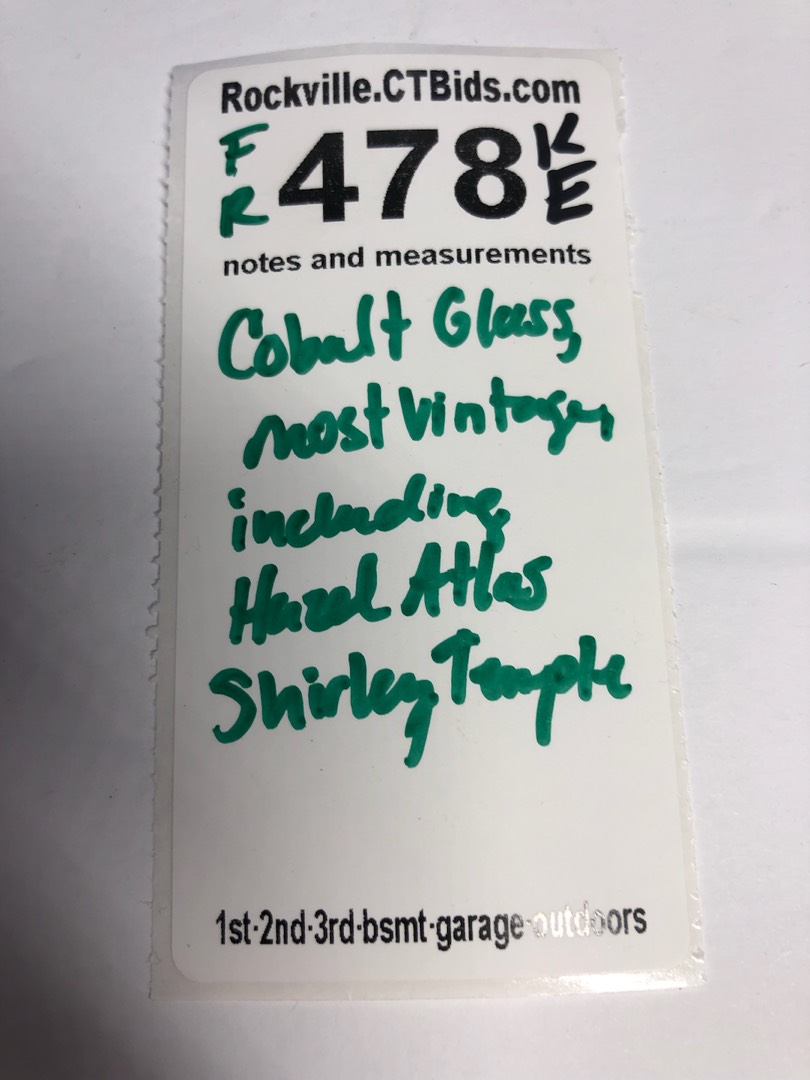 Rockville.CTBids.com
F R 478 K E
notes and measurements
Cobalt Glass,
most vintage,
including
Hazel Atlas
Shirley Temple
1st·2nd·3rd·bsmt·garage·outdoors